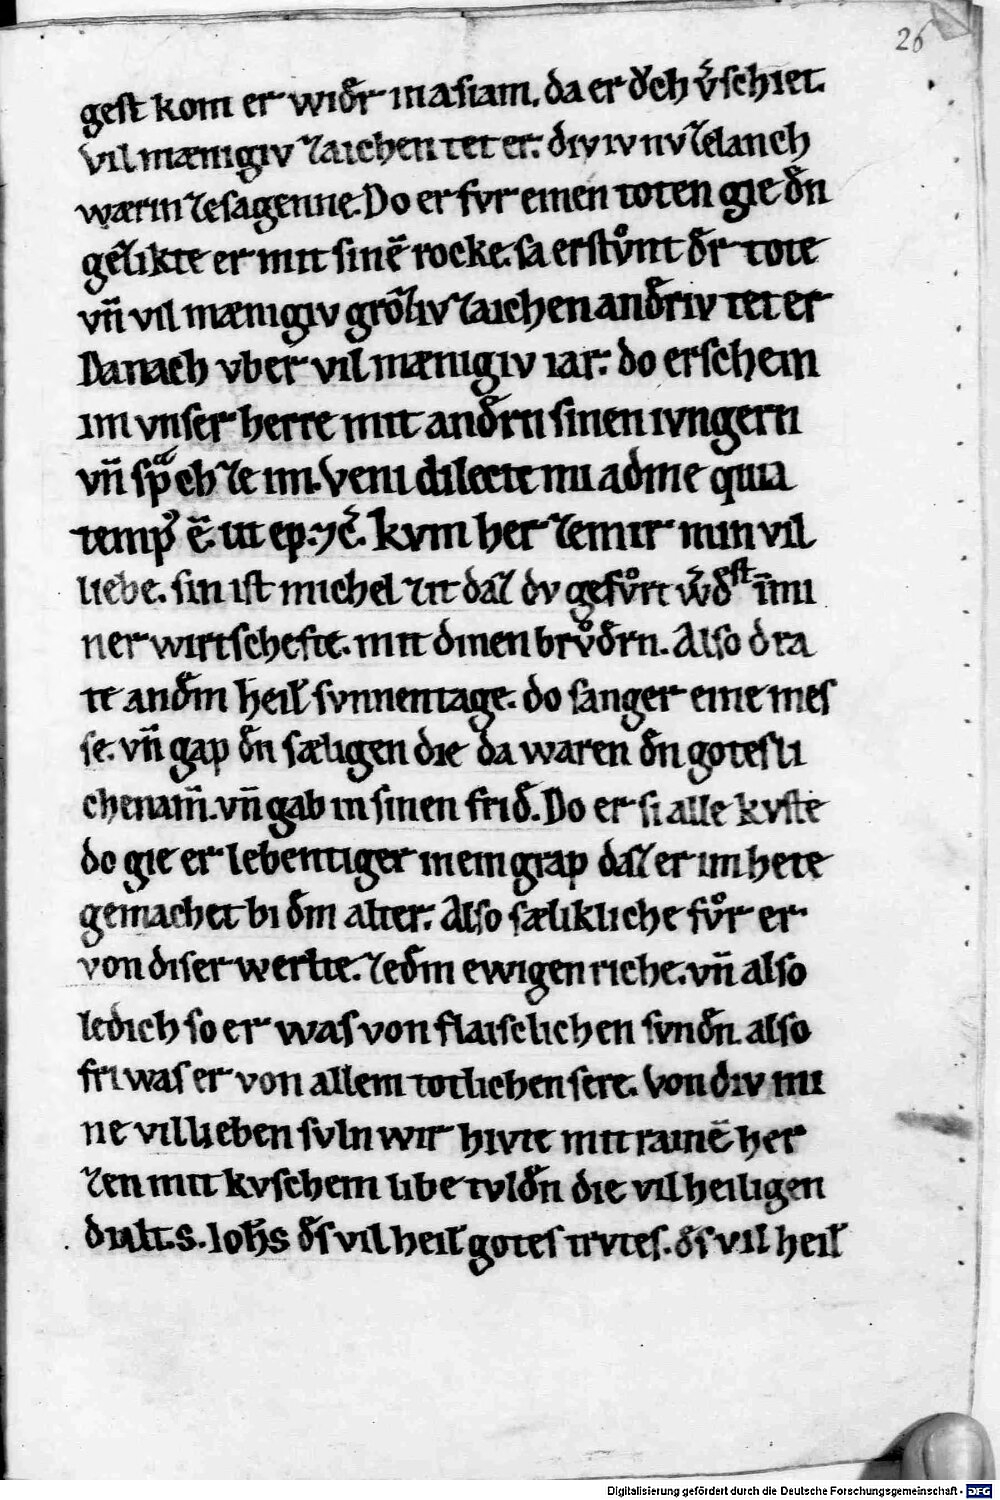 26
gest kom er wid͛r in asiam. da er oͮch v͛schiet.
vil mænigiv zaichen tet er. div iv nv ze lanch
wærin ze sagenne. Do er fvr einen toten gie dͤn
gezlikte er mit sinē rocke. sa erstvͦnt dͤr tote
vn̄ vil mænigiv grozliv zaichen andͤriv tet er
Danach vber vil mænigiv iar. do erschein
im vnser herre mit andͤrn sinen ivngern
vn̄ spͣch ze im. Veni dilecte mi ad me quia
temp᾽ ē. ut ep. ⁊c̄. kvm her ze mir min vil
liebe. sin ist michel zit daz dv gefvͦrt w͛dͤst in mi
ner wirtschefte. mit dinen brvͦdͤrn. Also dra
te an dͤm heil̄ svnnentage. do sanger eine mes
se. vn̄ gap dͤn sæligen die da waren dͤn gotes li
chenam̄. vn̄ gab in sinen frid. Do er si alle kvste
do gie er lebentiger in ein grap daz er im hete
gemachet bi dͤm alter. Also sælikliche fvͦr er
von diser werlte. ze dͤm ewigen riche. vn̄ also
ledich so er was von flaisclichen svndͤn. also
fri was er von allem totlichen sere. Von div mi
ne vil lieben svln wir hivte mit rainē her
zen mit kvschem libe tvldͤn die vil heiligen
dult. S. Ioh̄s dͤs vil heil̄ gotes trvtes. dͤs vil heil̄
Digitalisierung gefördert durch die Deutsche Forschungsgemeinschaft - DFG